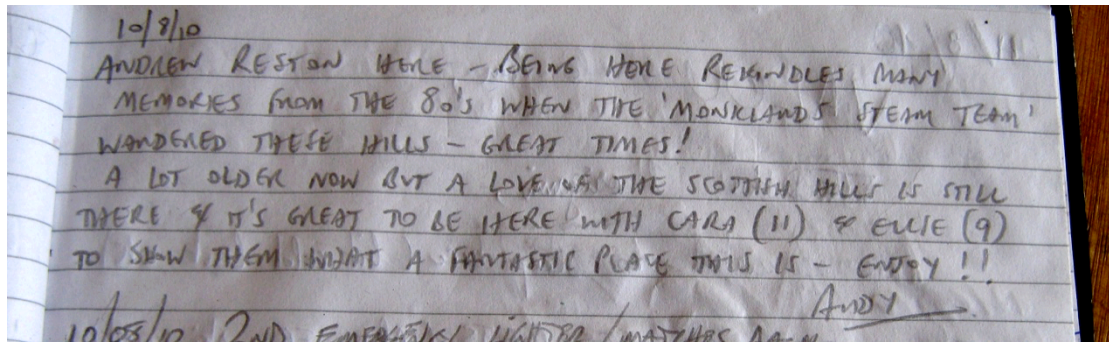 10/8/10
ANDREW RESTON HERE - BEING HERE REKINDLES MANY
MEMORIES FROM THE 80's WHEN THE 'MONKLANDS STEAM TEAM'
WANDERED THESE HILLS - GREAT TIMES!
A LOT OLDER NOW BUT A LOVE OF THE SCOTTISH HILLS IS STILL
THERE & IT'S GREAT TO BE HERE WITH CARA (11) & ELLIE (9)
TO SHOW THEM WHAT A FANTASTIC PLACE THIS IS - ENJOY!!
ANDY
10/08/10 2ND EMERGENCY LIGHTER / MATCHES